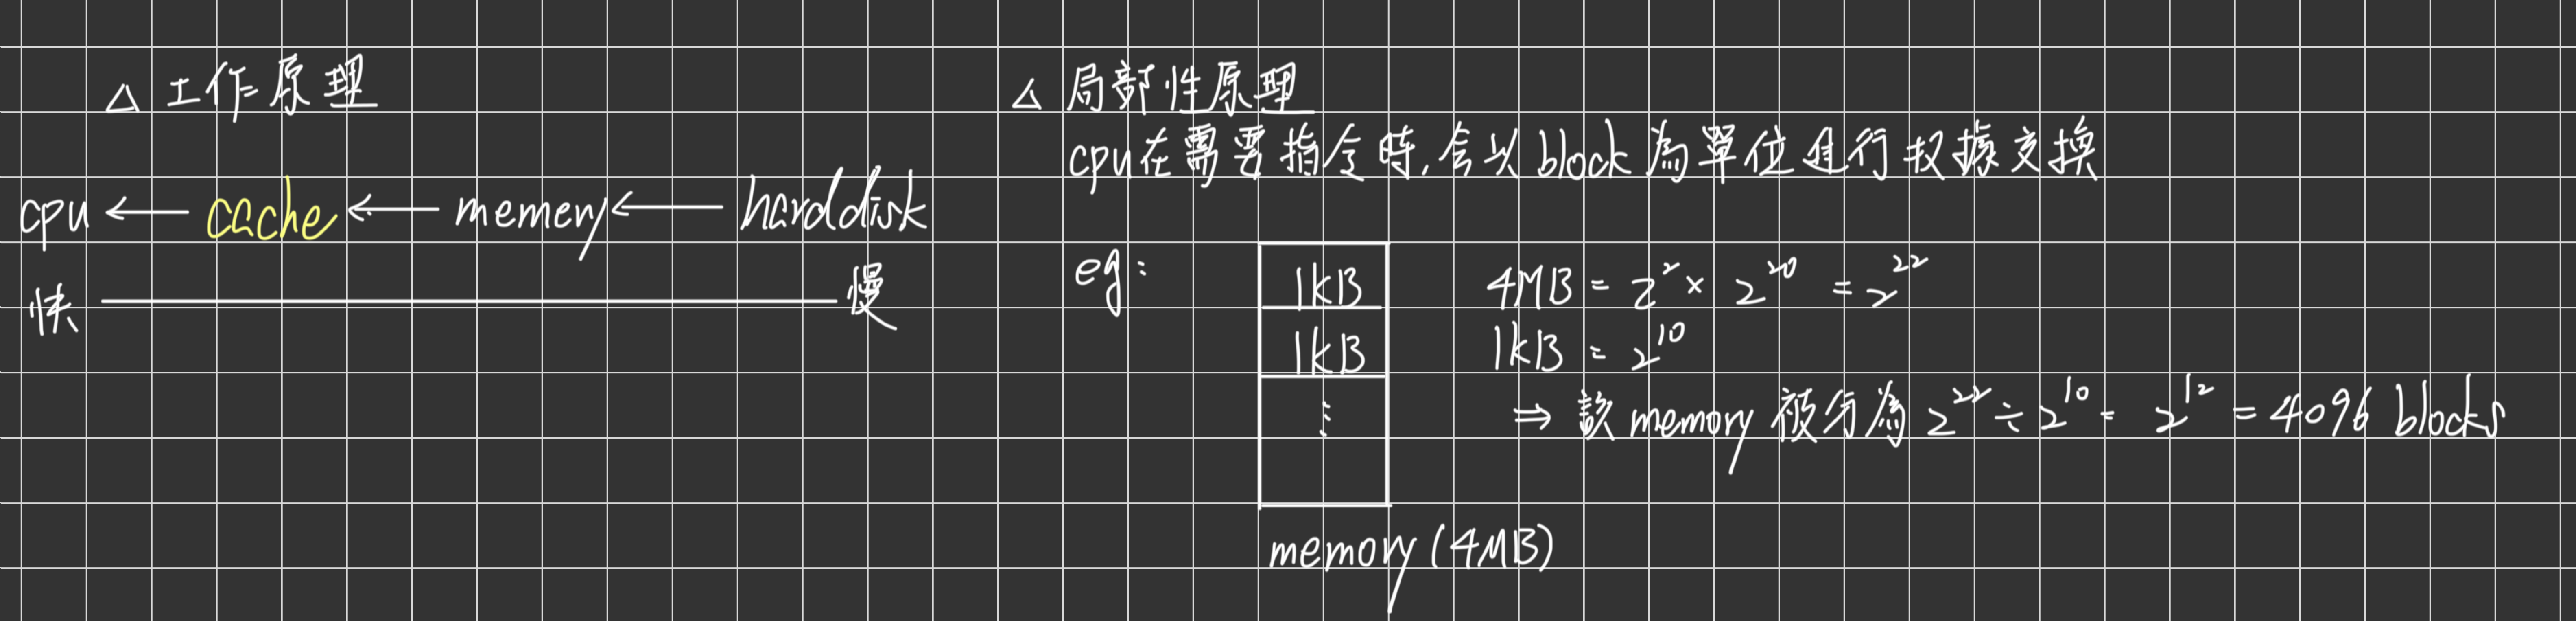 △ 工作原理
cpu ← cache ← memery ← harddisk
快 慢
△ 局部性原理
cpu在需要指令時,會以block為單位進行数據交換
eg:
1kB
1kB
⋮
memory (4MB)
4MB = 2² × 2²⁰ = 2²²
1kB = 2¹⁰
⇒ 該 memory 被分為 2²² ÷ 2¹⁰ = 2¹² = 4096 blocks